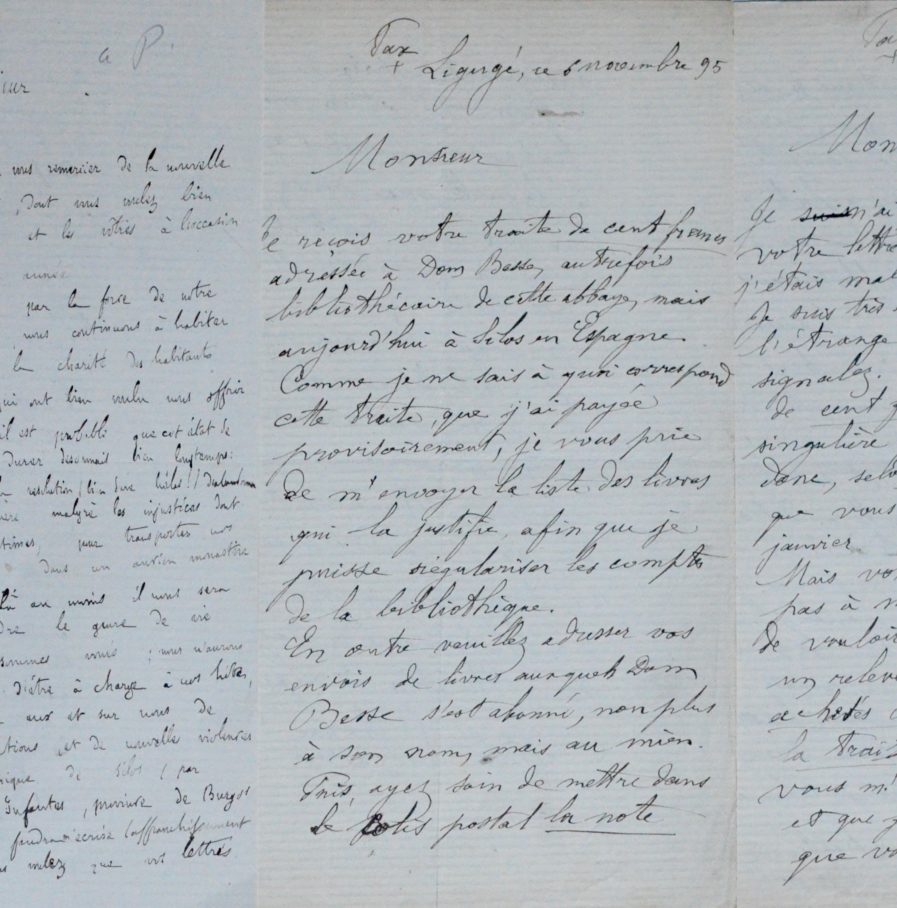 a P.
vous remercier de la nouvelle
, dont vous voulez bien
et les vôtres à l'occasion
année
par la force de notre
nous continuons à habiter
la charité des habitants
qui ont bien voulu nous offrir
il est probable que cet état de
durer désormais bien longtemps:
resolution
malgré les injustices dont
pour transporter nos
dans un ancien monastère
au moins il nous sera
le genre de vie
sommes voués ; nous n'aurons
d'être à charge à nos hôtes,
eux et sur nous de
et de nouvelles violences
de Silos / par
Infantes, province de Burgos
affranchissement
que vos lettres
Pax
+
Ligugé, ce 6 novembre 95
Monsieur
Je reçois votre traite de cent francs
adressée à Dom Besse, autrefois
bibliothécaire de cette abbaye, mais
aujourd'hui à Silos en Espagne.
Comme je ne sais à quoi correspond
cette traite, que j'ai payée
provisoirement, je vous prie
de m'envoyer la liste des livres
qui la justifie, afin que je
puisse régulariser les comptes
de la bibliothèque.
En outre veuillez adresser vos
envois de livres auxquels Dom
Besse s'est abonné, non plus
à son nom, mais au mien.
Puis, ayez soin de mettre dans
le colis postal la note
Pax
+
Mon
Je suis n'ai
votre lettre
j'étais mal
Je suis très
l'étrange
signalez.
de cent f
singulière
Donc, selo
que vous
janvier.
Mais vo
pas à m
de vouloir
un relevé
achetés
la trait
vous m'
et que j
que vo